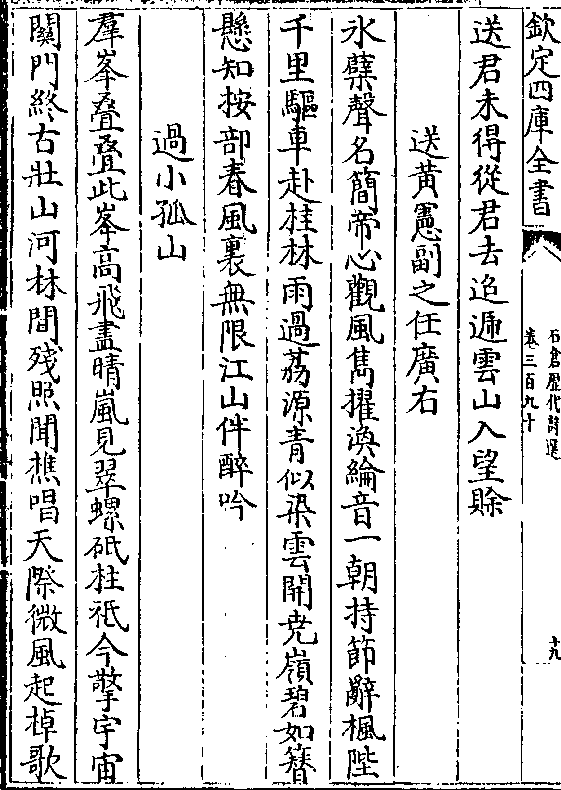 欽定四庫全書
石倉歴代詩選
卷三百九十
十九
送君未得從君去迢遞雲山入望賖
送黄憲副之任廣右
氷蘖聲名簡帝心觀風雋擢渙綸音一朝持節辭楓陛
千里驅車赴桂林雨過荔源青似染雲開堯嶺碧如簪
懸知按部春風裏無限江山伴醉吟
過小孤山
羣峯叠叠此峯高飛盡晴嵐見翠螺砥柱祗今擎宇宙
關門終古壯山河林間殘照聞樵唱天際微風起棹歌